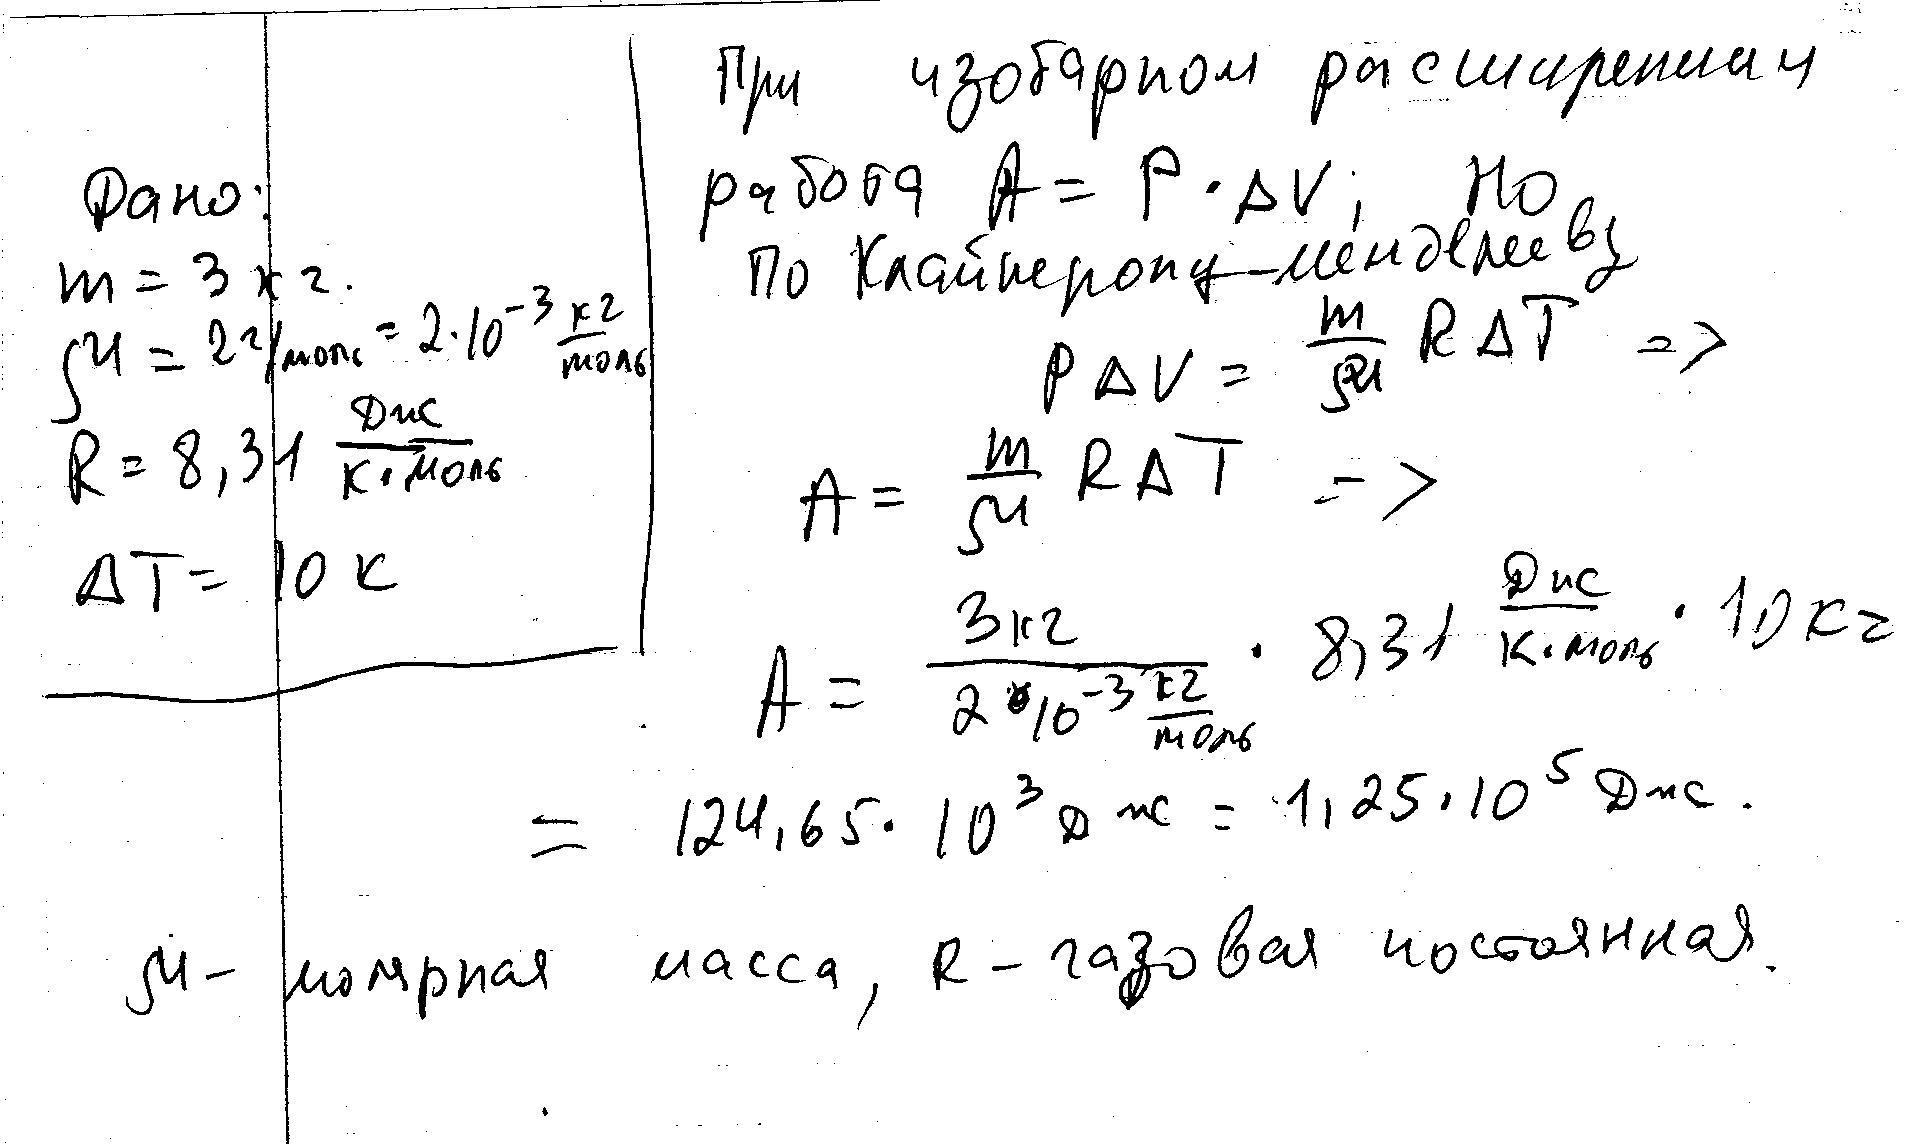 Дано:
m = 3 кг.
μ = 2 г/моль = 2·10⁻³ кг/моль
R = 8,31 Дж/К·моль
ΔT = 10 К
При изобарном расширении
работа A = P·ΔV; Но
по Клайперону-Менделееву
PΔV = m/μ RΔT =>
A = m/μ RΔT =>
A = 3кг/2·10⁻³ кг/моль · 8,31 Дж/К·моль · 10 К =
= 124,65·10³ Дж = 1,25·10⁵ Дж.
μ - молярная масса, R - газовая постоянная.